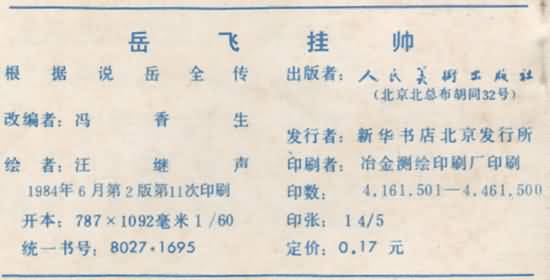 岳飞挂帅
根据说岳全传
改编者：冯香生
绘者：汪继声
1984年6月第2版第11次印刷
开本：787×1092毫米1/60
统一书号：8027·1695
出版者：人民美术出版社
（北京北总布胡同32号）
发行者：新华书店北京发行所
印刷者：冶金测绘印刷厂印刷
印数：4,161,501—4,461,500
印张：1 4/5
定价：0.17元